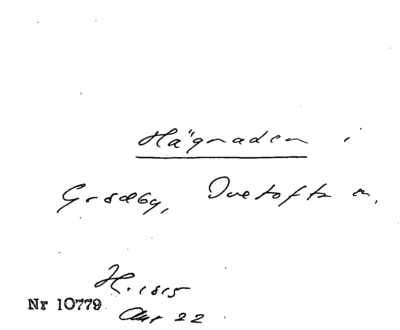 Hägnaden i
Grödby, Ovetofta m.
H. 1815
Nr 10779
Aug 22